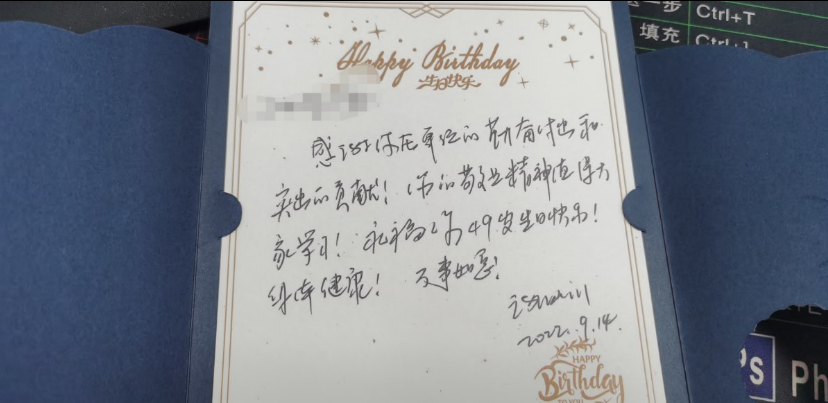 一步 Ctrl+T
填充 Ctrl+J
Happy Birthday
生日快乐
感谢你在单位的勤奋付出和
突出的贡献！你的敬业精神值得大
家学习！永祝你49岁生日快乐！
身体健康！万事如意！
2022.9.14.
HAPPY
Birthday
TO YOU
PS Ph